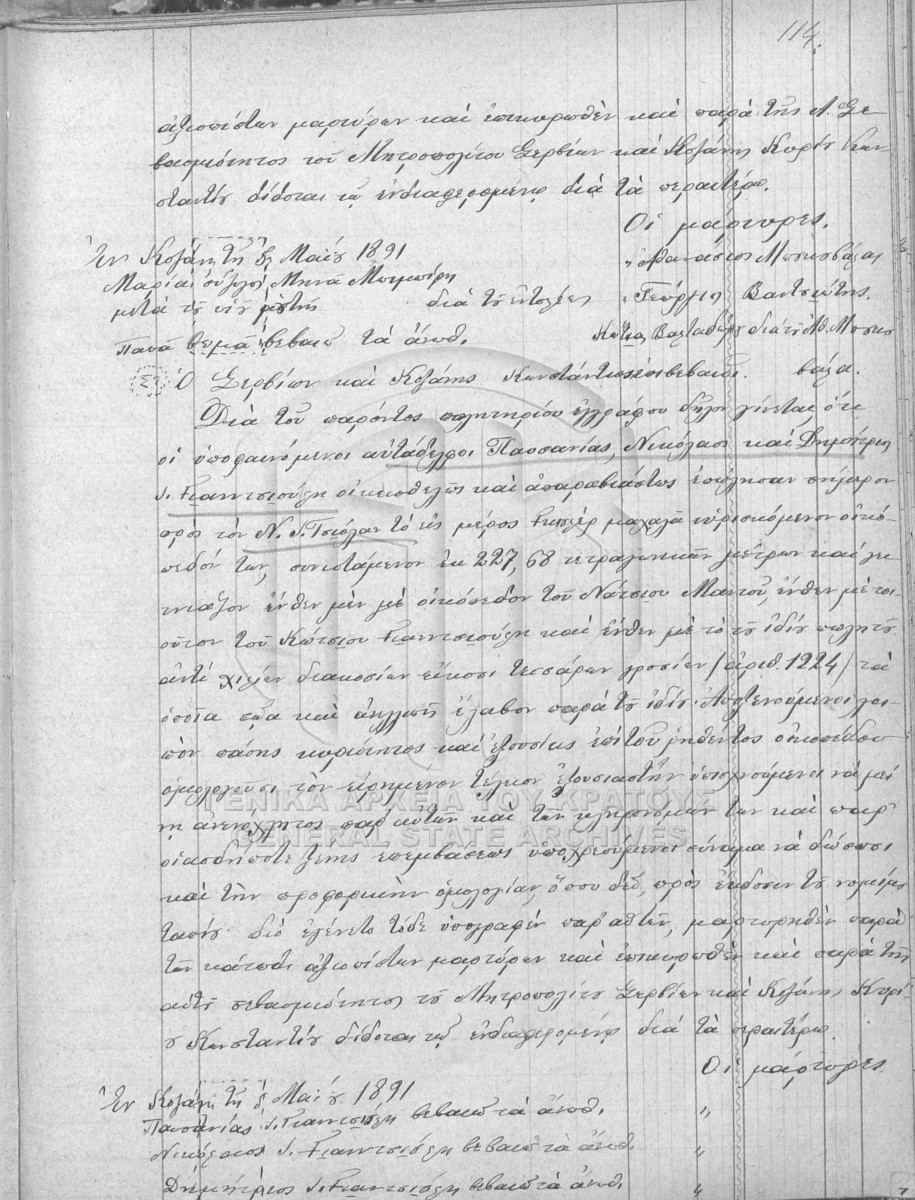 114.
ἀξιοπίστων μαρτύρων καὶ ἐπικυρωθὲν καὶ παρὰ τῆς Α. Σε-
βασμιότητος τοῦ Μητροπολίτου Σερβίων καὶ Κοζάνης Κυρίου Κων-
σταντίου δίδοται τῷ ἐνδιαφερομένῳ διὰ τὰ περαιτέρω.
Οἱ μάρτυρες.
Ἐν Κοζάνῃ τῇ Μαΐου 1891
Ἀθανάσιος
Μαρία σύζυγος Μηνᾶ
μετὰ τοῦ υἱοῦ αὐτῆς διὰ τῆς ἐντολῆς Γεώργιος Βαντσιώτης.
Παπᾶ Θωμᾶ βεβαιῶ τὰ ἄνωθ. διὰ τὸν Ἀθ.
Ὁ Σερβίων καὶ Κοζάνης Κωνστάντιος ἐπιβεβαιοῖ.
Διὰ τοῦ παρόντος πωλητηρίου ἐγγράφου δῆλον γίνεται, ὅτι
οἱ ὑποφαινόμενοι αὐτάδελφοι Παυσανίας, Νικόλαος καὶ Δημήτριος
Ι. Γιαντσιούλη οἰκειοθελῶς καὶ ἀπαραβιάστως ἐπώλησαν σήμερον
πρὸς τὸν Ν. Ι. Τσιόλαν τὸ εἰς μέρος μαχαλᾶ εὑρισκόμενον οἰκό-
πεδόν των, συνιστάμενον ἐκ 227,68 τετραγωνικῶν μέτρων καὶ γει-
τνιάζον ἔνθεν μὲν μὲ οἰκόπεδον τοῦ Νάτσιου Μαντοῦ, ἔνθεν μὲ τοι-
οῦτον τοῦ Κώτσιου Γιαντσιούλη καὶ ἔνθεν μὲ τὸ τοῦ ἰδίου πωλητοῦ
ἀντὶ χιλίων διακοσίων εἴκοσι τεσσάρων γροσίων (ἀριθ. 1224) τὰ
ὁποῖα σῶα καὶ ἀνελλιπῆ ἔλαβον παρὰ τοῦ ἰδίου. Ἀποξενούμενοι λοι-
πὸν πάσης κυριότητος καὶ ἐξουσίας ἐπὶ τοῦ ῥηθέντος οἰκοπέδου
ὁμολογοῦσι τὸν εἰρημένον τέλειον ἐξουσιαστὴν ὑπισχνούμενοι νὰ μεί-
νῃ ἀνενόχλητος παρ' αὐτῶν καὶ τῶν κληρονόμων των καὶ παρ'
οἱασδήποτε ξένης ἐπεμβάσεως ὑποχρεούμενοι σύναμα νὰ δώσωσι
καὶ τὴν προφορικὴν ὁμολογίαν, ὅπου δεῖ, πρὸς ἔκδοσιν τοῦ νομίμου
ταπίου. διὸ ἐγένετο τόδε ὑπογραφὲν παρ' αὐτῶν, μαρτυρηθὲν παρὰ
τῶν κάτωθι ἀξιοπίστων μαρτύρων καὶ ἐπικυρωθὲν καὶ παρὰ τῆς
αὐτοῦ σεβασμιότητος τοῦ Μητροπολίτου Σερβίων καὶ Κοζάνης Κυρί-
ου Κωνσταντίου δίδοται τῷ ἐνδιαφερομένῳ διὰ τὰ περαιτέρω.
Οἱ μάρτυρες
Ἐν Κοζάνῃ τῇ Μαΐου 1891
Παυσανίας Ι. Γιαντσιούλη βεβαιῶ τὰ ἄνωθ. "
Νικόλαος Ι. Γιαντσιούλη βεβαιῶ τὰ ἄνωθ. "
Δημήτριος Ι. Γιαντσιούλη βεβαιῶ τὰ ἄνωθ. "
ΓΕΝΙΚΑ ΑΡΧΕΙΑ ΤΟΥ ΚΡΑΤΟΥΣ
GENERAL STATE ARCHIVES